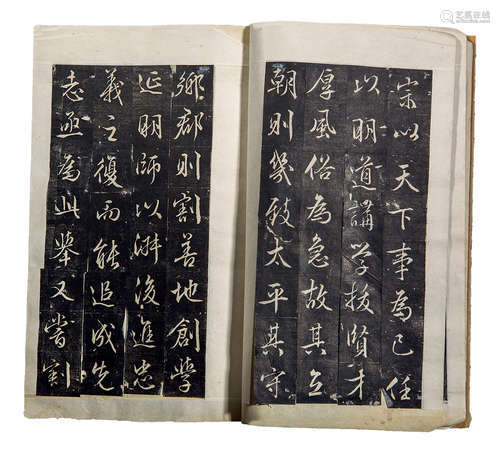 宋以天下事為己任
以明道講学拔賢才
厚風俗為急故其立
朝則幾致太平其守
鄉郡則割善地創學
延明師以淑後進忠
義之復而能追成先
志亟為此舉又嘗割
艺狐在线